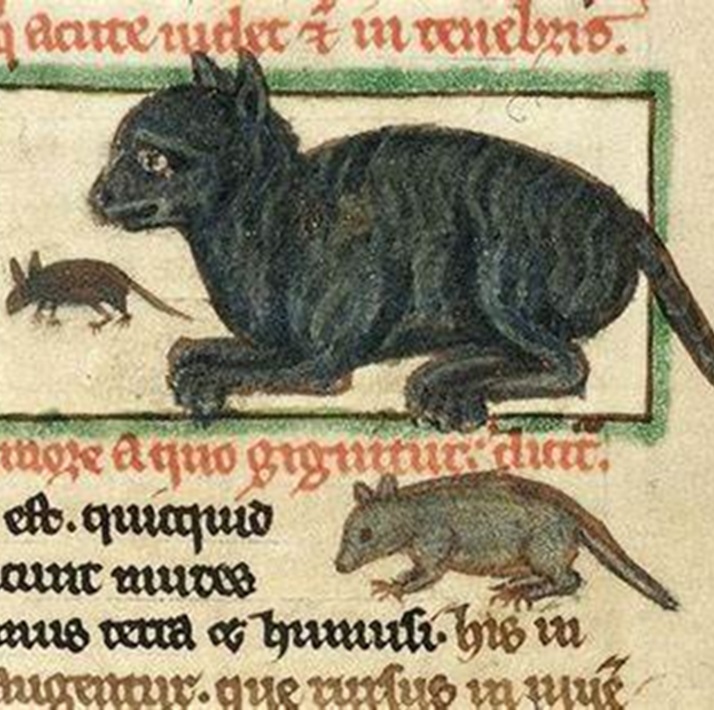 q̄ acute uidet ⁊ in tenebris.
more a quo gignitur: dicit̄.
est. quicquid
mures
terra et humus. his in
augentur. que rursus in